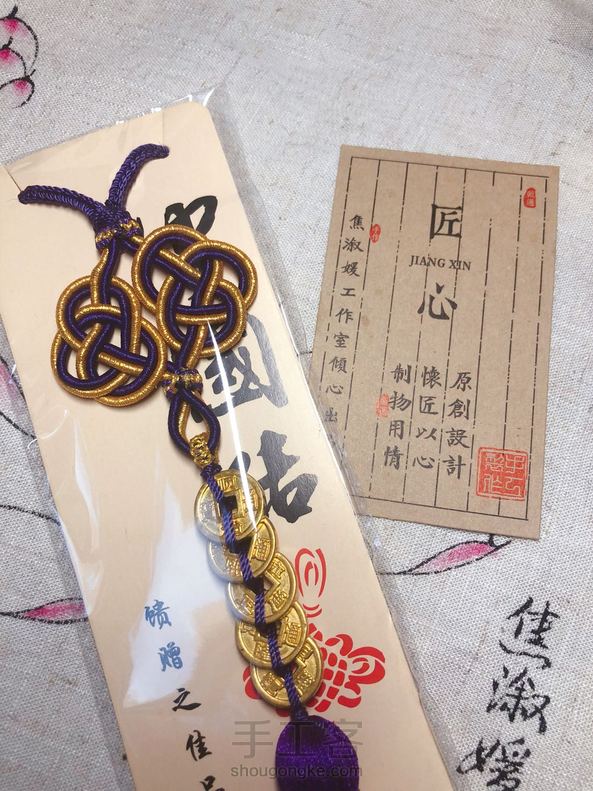 中國结
馈赠之佳品
匠
JIANG XIN
心
原創設計
懷匠以心
制物用情
焦淑媛工作室傾心出
焦淑媛
手工客
shougongke.com